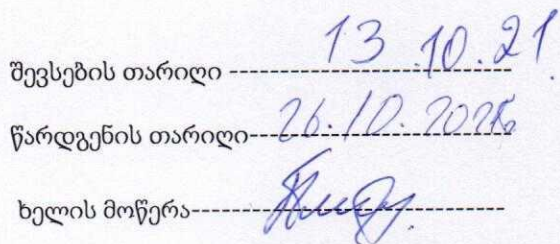 შევსების თარიღი ---------------------- 13.10.21
წარდგენის თარიღი----------------------26.10.2021
ხელის მოწერა----------------------